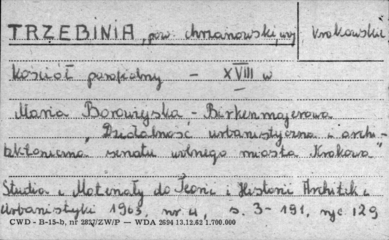 TRZEBINIA, pow. chrzanowski, woj. krakowskie
Kościół parafialny – XVIII w
Maria Borowiejska - Birkenmajerowa
"Działalność urbanistyczna i archi-
tektoniczna senatu wolnego miasta Krakowa"
Studia i Materiały do Teorii i Historii Architekt. i
Urbanistyki 1963, nr 4, s. 3-191, ryc 129
CWD - B-15-b, nr 2827/ZW/P — WDA 2694 13.12.62 1.700.000